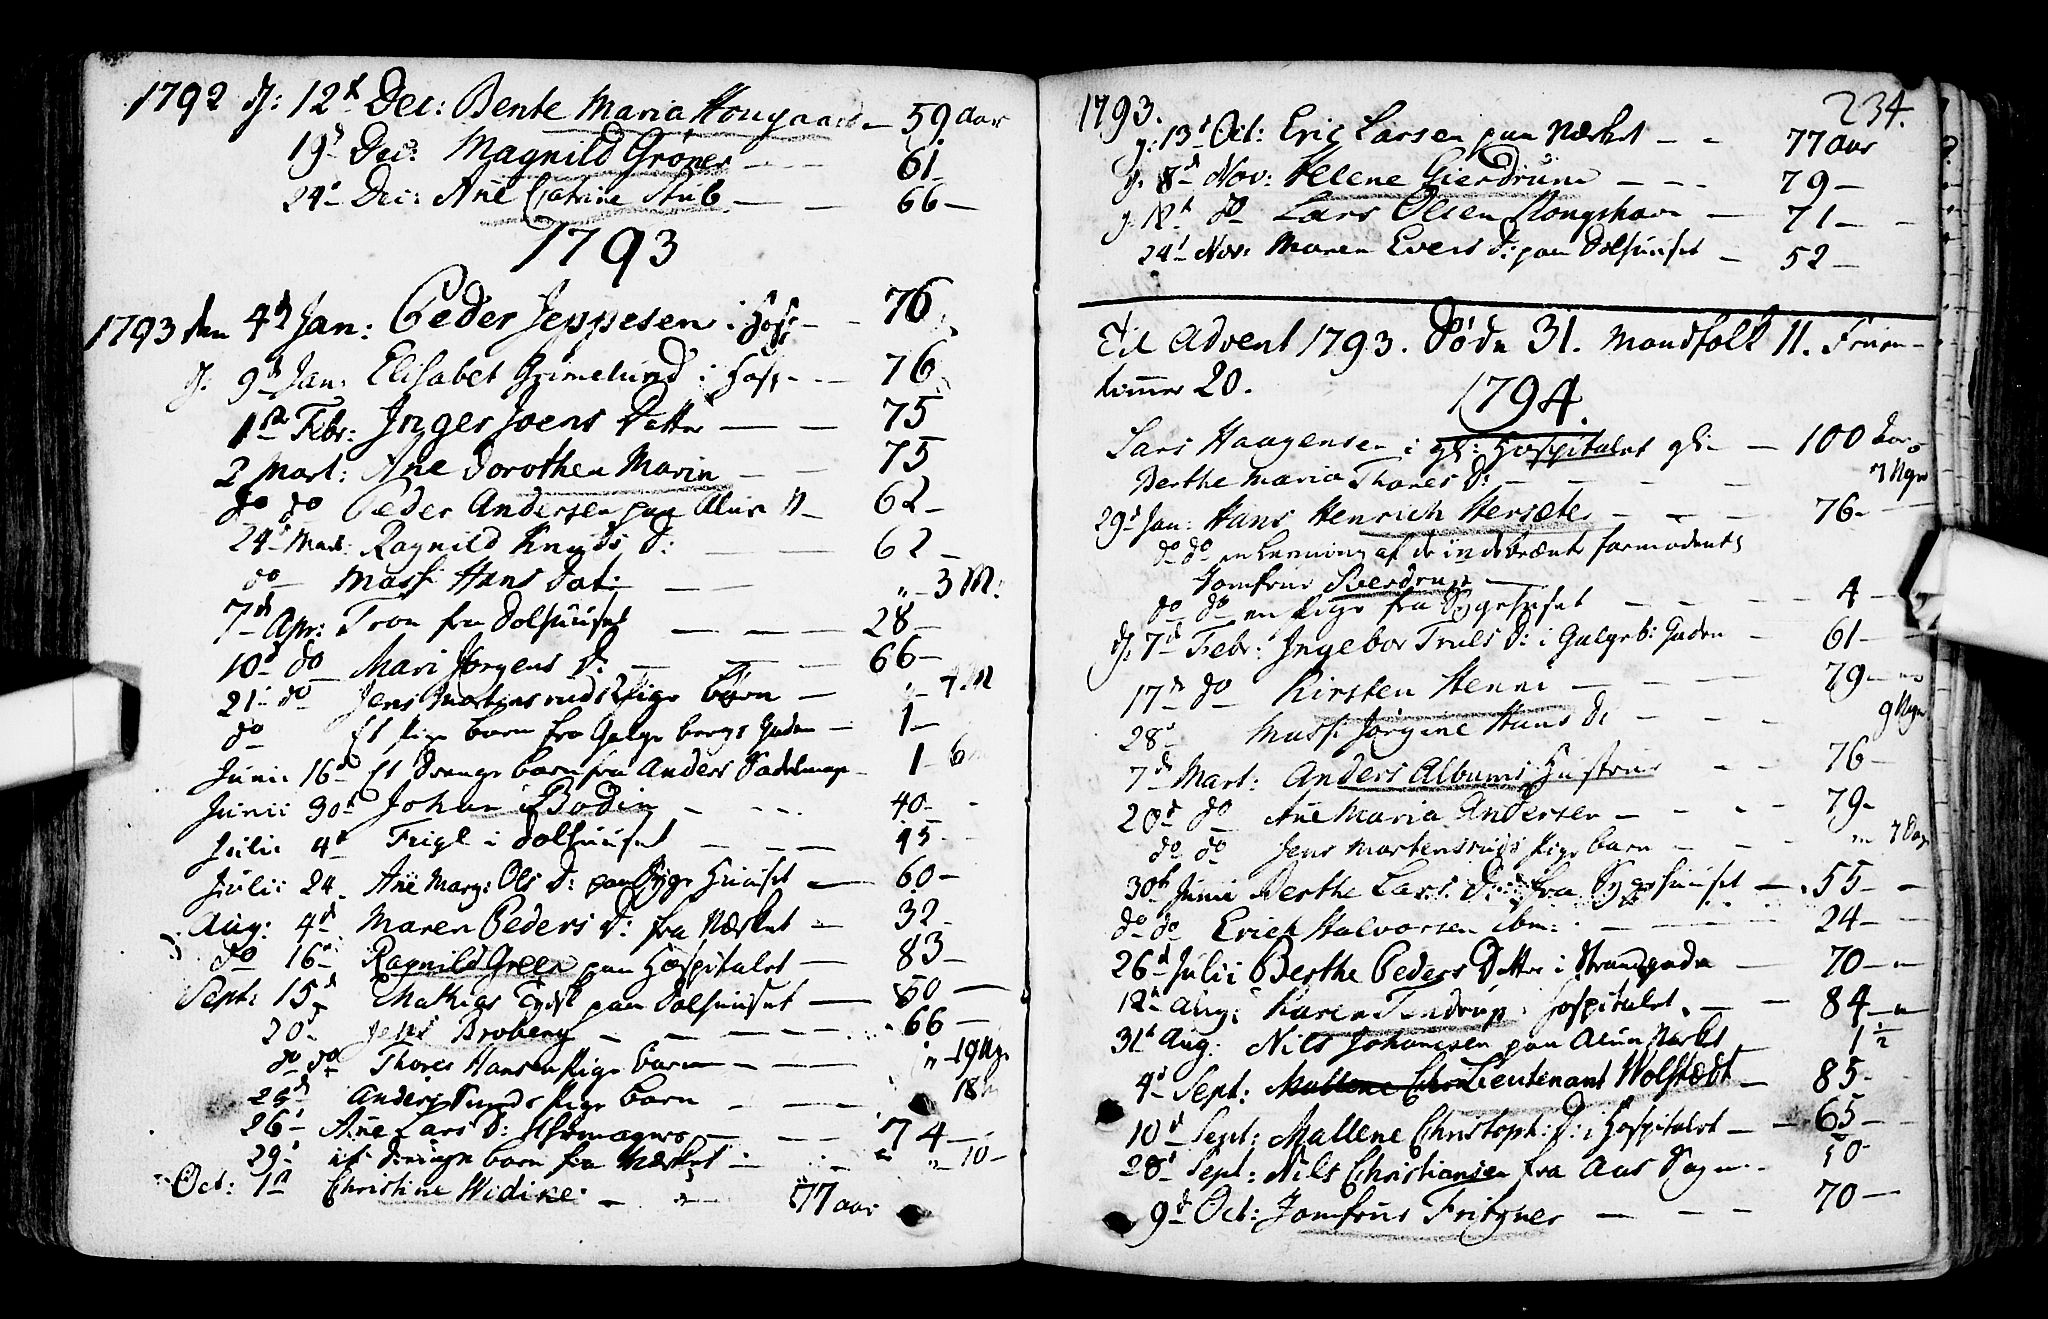 1792 d: 12t Dec: Bente Maria Hougaard – 59 Aar
19d Dec: Magnild Grøner – – 61 –
24d Dec: Ane Catrine Stub – – 66 –
1793
1793 den 4d Jan: Peder Jeppesen i Hosp – – 76
d. 9d Jan: Elisabet Grimelund i Hosp – – 76
1ste Febr: Inger Joens Datter – – 75
2 Mart: Ane Dorothea Marin – – 75
do do Peder Andersen paa Alun V – 62 –
24d Mart: Ragnild Knuds D: – – 62 –
do – Mass Hans Dat: – – " – 3 M:
7d Apr: Tron fra Dolhuuset – – – 28 –
10d do Mari Jørgens D: – – – 66 –
21 – do Jens Martensruds Pige Børn – " – 7 M
do Et Pige barn fra Galgebergs Gaden – 1 –
Junii 16d Et Drenge barn fra Anders – 1 – 6
Junii 30d Johan Bodin – – – 40 –
Julii 4d i Dolhuuset – – – 45 –
Julii 24 Ane Marg: Ols D: paa Syge Huuset – 60 –
Aug: 4d Maren Peders D: fra Værket – 32 –
do 16d Ragnild Green paa Hospitalet – 83 –
Sept: 15d Mathias Tydsk paa Dolhuuset – 50 –
20d Jens Broberg – – – – 66 –
do do Thores Hansen Pige barn – – " – 19 Uge
25d Anders Sunds Pige barn – – – 18
26d Ane Lars D: – – – 74 –
29d et Drenge barn fra Værket – – " – 10 –
Oct: 1ste Christine Widike – – 77 aar
1793. 234.
d: 13d Oct: Eric Larsen paa Værket – – 77 Aar
d. 8d Nov: Helene Gierdrum – – – 79 –
d. 12d do Lars Olsen Kongshavn – 71 –
24d Nov: Maren Evers D: paa Dolhuuset – 52 –
Til Advent 1793. Døde 31. Mandfolk 11. Fruen–
timer 20.
1794.
Lars Haagensen i Hospitalet – 100 Aar
Berthe Maria Thores D: – – – – 7 Uger
29d Jan: Hans Henrich Hersæter – – – 76 –
do do en Levning af de indebrændte formodentl
Jomfrue Sverdrup –
do do en Pige fra Sygehuset – – – 4 –
d: 7d Febr: Ingebor Truls D: i Galgeb: Gaden – 61 –
17d do Kirsten Henni – – – 79 –
28d Mass Jørgine Hans D: – – – 9 Uger
7d Mart: Anders Albums Hustrue – – 76 –
20d do Ane Maria Andersen – – – 79 –
do do Jens Martensruds Pige barn – – – " 7 Dag
30te Junii Berthe Lars D: fra Sygehuuset – 55 –
do do Erich Halvorsen ibm: – – – 24 –
26d Julii Berthe Peders Datter i Strandgaden – 70 –
12d Aug: Karen Tindrup i Hospitalet – – 84 –
31d Aug: Nils Johannesen paa Alun Værket – 1½
4d Sept: Lieutenant Wolstædt – 85 –
10d Sept: Mallene Christoph: D: i Hospitalet – – 65 –
28d Sept: Nils Christiansen fra Aas Sogn – 50 –
9d Oct: Jomfrue Fritzner – – – 70 –